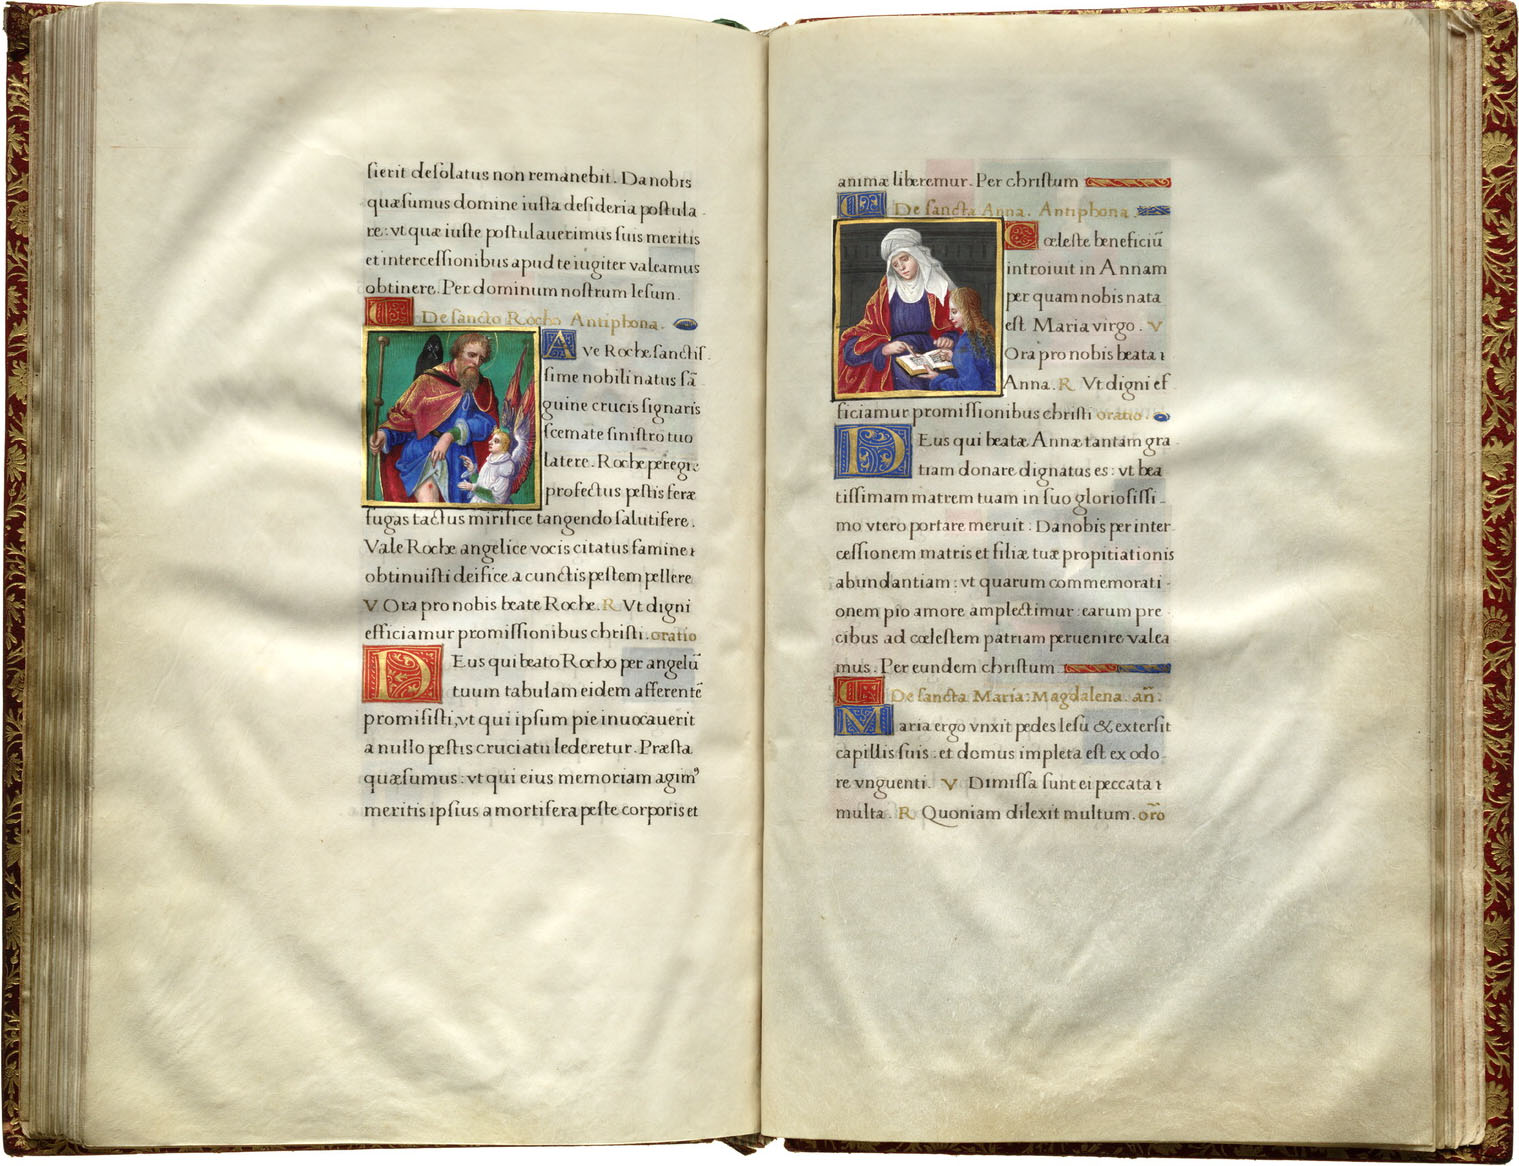 ſierit deſolatus non remanebit. Da nobis
quæſumus domine iuſta deſideria poſtula-
re: vt quæ iuſte poſtulauerimus ſuis meritis
et interceſſionibus apud te iugiter valeamus
obtinere. Per dominum noſtrum Ieſum.
De ſancto Rocho Antiphona.
AVe Roche ſanctiſ-
ſime nobili natus ſā-
guine crucis ſignaris
ſcemate ſiniſtro tuo
latere. Roche peregre
profectus peſtis feræ
fugas tactus mirifice tangendo ſalutifere.
Vale Roche angelice vocis citatus famine:
obtinuiſti deifice a cunctis peſtem pellere
V Ora pro nobis beate Roche. R Vt digni
efficiamur promiſſionibus chriſti. oratio
DEus qui beato Rocho per angelū
tuum tabulam eidem afferentē
promiſiſti, vt qui ipſum pie inuocauerit
a nullo peſtis cruciatu lederetur. Præſta
quæſumus: vt qui eius memoriam agimꝰ
meritis ipſius a mortifera peſte corporis et
animæ liberemur. Per chriſtum
De ſancta Anna. Antiphona.
Cœleſte beneficiū
introiuit in Annam
per quam nobis nata
eſt Maria virgo. V
Ora pro nobis beata
Anna. R Vt digni ef
ficiamur promiſſionibus chriſti oratio
DEus qui beatæ Annæ tantam gra
tiam donare dignatus es: vt bea
tiſſimam matrem tuam in ſuo glorioſiſſi-
mo vtero portare meruit: Da nobis per inter
ceſſionem matris et filiæ tuæ propitiationis
abundantiam: vt quarum commemorati-
onem pio amore amplectimur: earum pre
cibus ad cœleſtem patriam peruenire valea
mus. Per eundem chriſtum
De ſancta Maria: Magdalena. añ.
Maria ergo vnxit pedes Ieſu & exterſit
capillis ſuis: et domus impleta eſt ex odo-
re vnguenti. V Dimiſſa ſunt ei peccata
multa. R Quoniam dilexit multum. oro